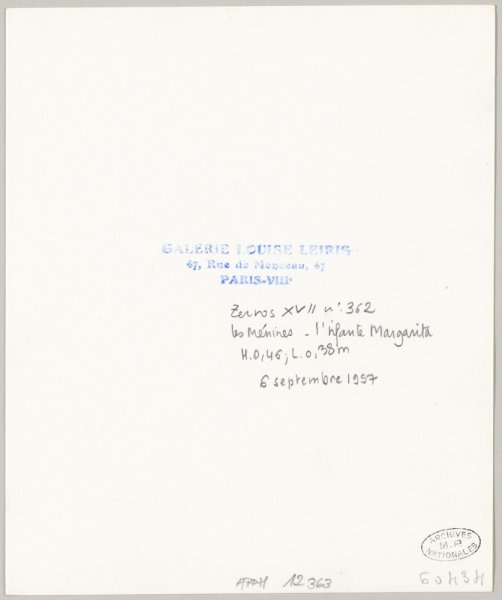 GALERIE LOUISE LEIRIS
47, Rue de Monceau, 47
PARIS-VIIIe
Zervos XVII n°. 362
les Ménines - l'infante Margarita
H.0,46; L.0,38m
6 septembre 1997
ARCHIVES
M.P
NATIONALES
APPH 12363